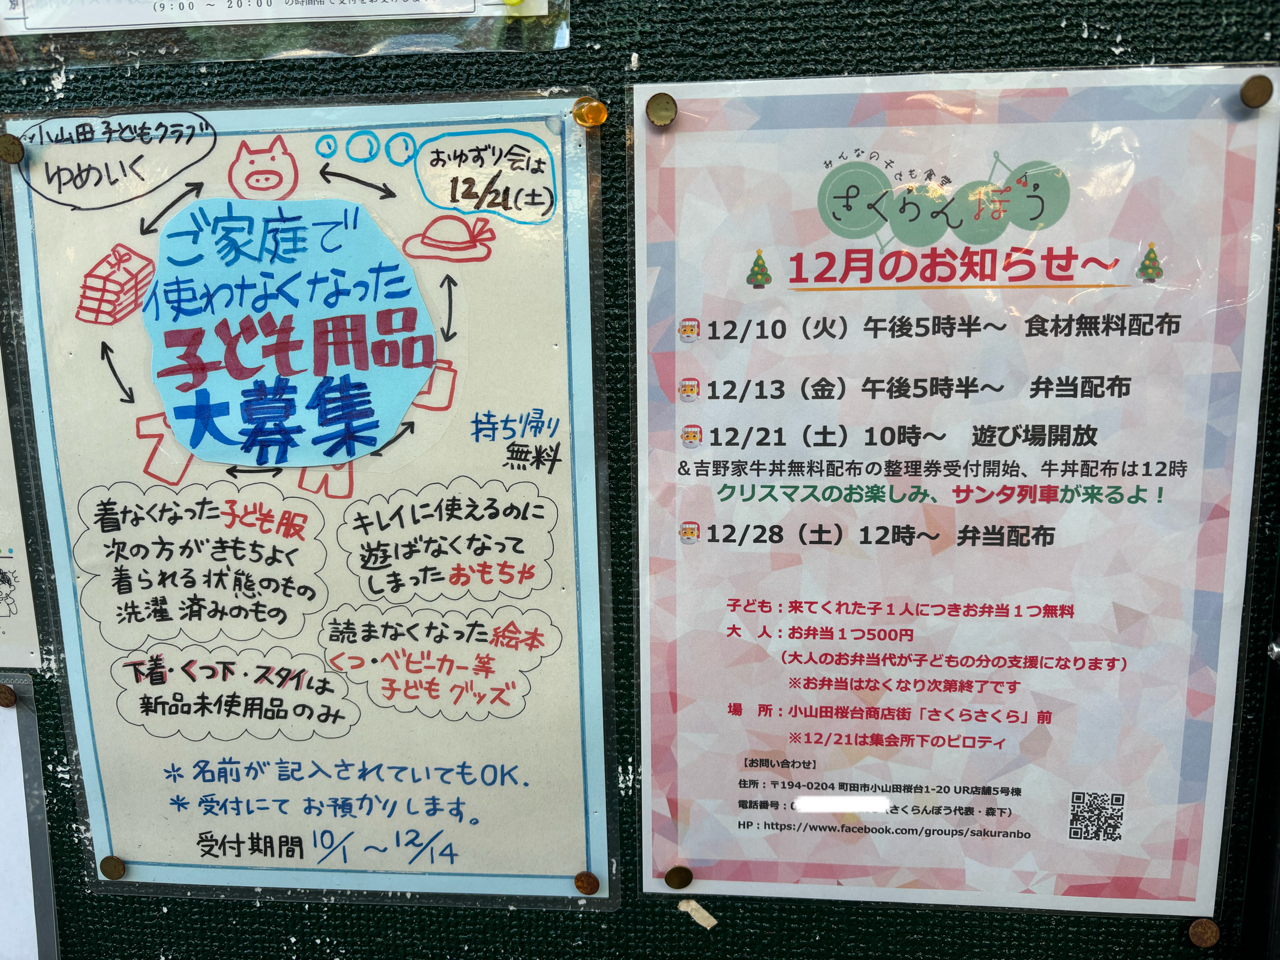 (9:00 ～ 20:00 の時間帯で受付をお受けします
小山田子どもクラブ
ゆめいく
おゆずり会は
12/21(土)
ご家庭で
使わなくなった
子ども用品
大募集
持ち帰り
無料
着なくなった子ども服
次の方がきもちよく
着られる状態のもの
洗濯済みのもの
キレイに使えるのに
遊ばなくなって
しまったおもちゃ
下着・くつ下・スタイは
新品未使用品のみ
読まなくなった絵本
くつ・ベビーカー等
子どもグッズ
＊名前が記入されていてもOK.
＊受付にてお預かりします。
受付期間10/1～12/14
みんなの子ども食堂
さくらんぼう
12月のお知らせ～
12/10（火）午後5時半～ 食材無料配布
12/13（金）午後5時半～ 弁当配布
12/21（土）10時～ 遊び場開放
＆吉野家牛丼無料配布の整理券受付開始、牛丼配布は12時
クリスマスのお楽しみ、サンタ列車が来るよ！
12/28（土）12時～ 弁当配布
子ども：来てくれた子１人につきお弁当１つ無料
大　人：お弁当１つ500円
（大人のお弁当代が子どもの分の支援になります）
※お弁当はなくなり次第終了です
場　所：小山田桜台商店街「さくらさくら」前
※12/21は集会所下のピロティ
【お問い合わせ】
住所：〒194-0204 町田市小山田桜台1-20 UR店舗5号棟
電話番号：0 さくらんぼう代表・森下）
HP：https://www.facebook.com/groups/sakuranbo